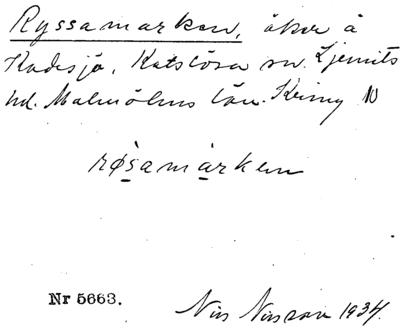 Ryssamarken, åker å
Kadesjö, Katslösa sn. Ljunits
hd. Malmöhus län.
røsamarken
Nr 5663.
Nils Nilsson 1934.